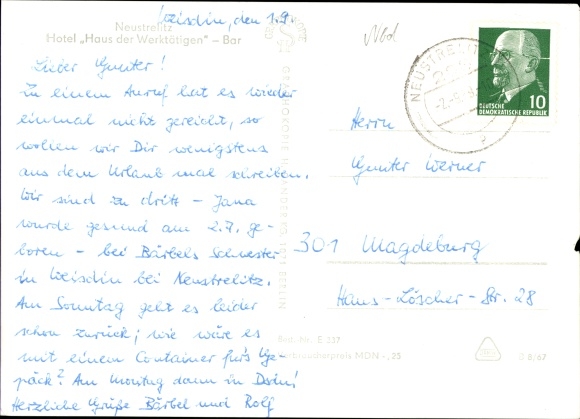 Weisdin, den 1.9.
Neustrelitz
Hotel „Haus der Werktätigen" – Bar
Lieber Gunter!
Zu einem Anruf hat es wieder
einmal nicht gereicht, so
wollen wir Dir wenigstens
aus dem Urlaub mal schreiben.
Wir sind zu dritt – Jana
wurde gesund am 2.7. ge-
boren – bei Bärbels Schwester
in Weisdin bei Neustrelitz.
Am Sonntag geht es leider
schon zurück; wie wäre es
mit einem Container fürs Ge-
päck? Am Montag dann in
Herzliche Grüße Bärbel und Rolf
NEUSTRELITZ
DEUTSCHE
DEMOKRATISCHE REPUBLIK
10
Herrn
Gunter Werner
301 Magdeburg
Hans-Löscher-Str. 28
Best.-Nr. E 337
Verbraucherpreis MDN -,25
G 8/67